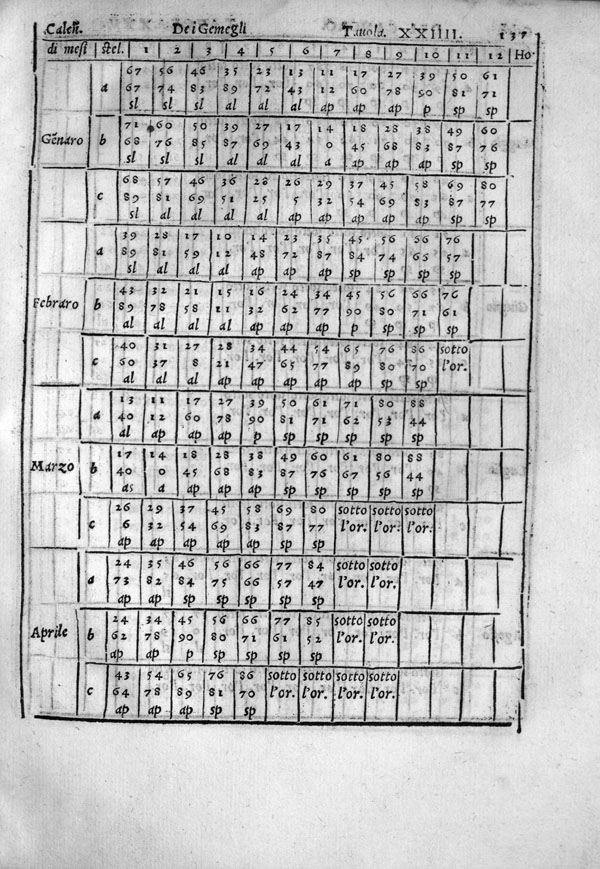 Caleñ. De i Gemegli Tauola. XXIIII. 137
di mesi stel. 1 2 3 4 5 6 7 8 9 10 11 12 Ho
67 56 46 35 23 13 11 17 27 39 50 61
a 67 74 83 89 72 43 12 60 78 90 81 71
sl sl sl al al al ap ap ap p sp sp
71 60 50 39 27 17 14 18 28 38 49 60
Gēnaro b 68 76 85 87 69 43 0 45 68 83 87 76
sl sl al al al al a ap ap ap sp sp
68 57 46 36 28 26 29 37 45 58 69 80
c 89 81 69 51 25 5 32 54 69 83 87 77
sl al al al al ap ap ap ap ap sp sp
39 28 17 10 14 23 35 45 56 66 76
a 89 81 59 12 48 72 87 84 74 65 57
sl al al al ap ap ap sp sp sp sp
43 32 21 15 16 24 34 45 56 66 76
Febraro b 89 78 58 11 32 62 77 90 80 71 61
al al al al ap ap ap p sp sp sp
40 31 27 28 34 44 54 65 76 86 sotto
c 60 37 8 21 47 65 77 89 80 70 l'or.
al al al ap ap ap ap ap sp sp
13 11 17 27 39 50 61 71 80 88
a 40 12 60 78 90 81 71 62 53 44
al ap ap ap p sp sp sp sp sp
17 14 18 28 38 49 60 61 80 88
Marzo b 40 0 45 68 83 87 76 67 56 44
as a ap ap ap sp sp sp sp sp
26 29 37 45 58 69 80 sotto sotto sotto
c 6 32 54 69 83 87 77 l'or. l'or. l'or.
ap ap ap ap ap sp sp
24 35 46 56 66 77 84 sotto sotto
a 73 82 84 75 66 57 47 l'or. l'or.
ap ap sp sp sp sp sp
24 34 45 56 66 77 85 sotto sotto
Aprile b 62 78 90 80 71 61 52 l'or. l'or.
ap ap p sp sp sp sp
43 54 65 76 86 sotto sotto sotto sotto
c 64 78 89 81 70 l'or. l'or. l'or. l'or.
ap ap ap sp sp